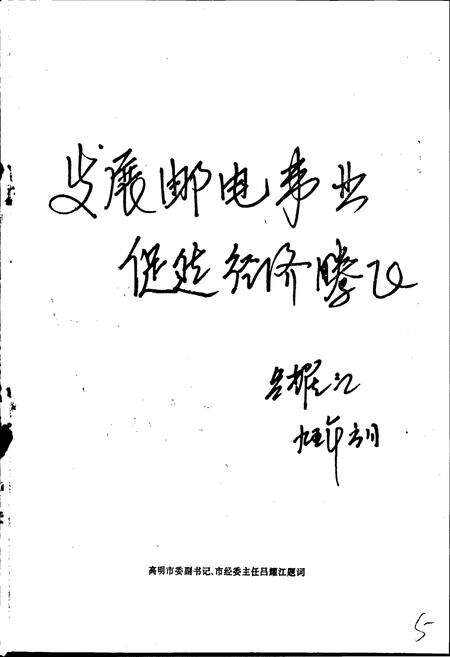 发展邮电事业
促进经济腾飞
吕耀江
九五年三月
高明市委副书记、市经委主任吕耀江题词
5